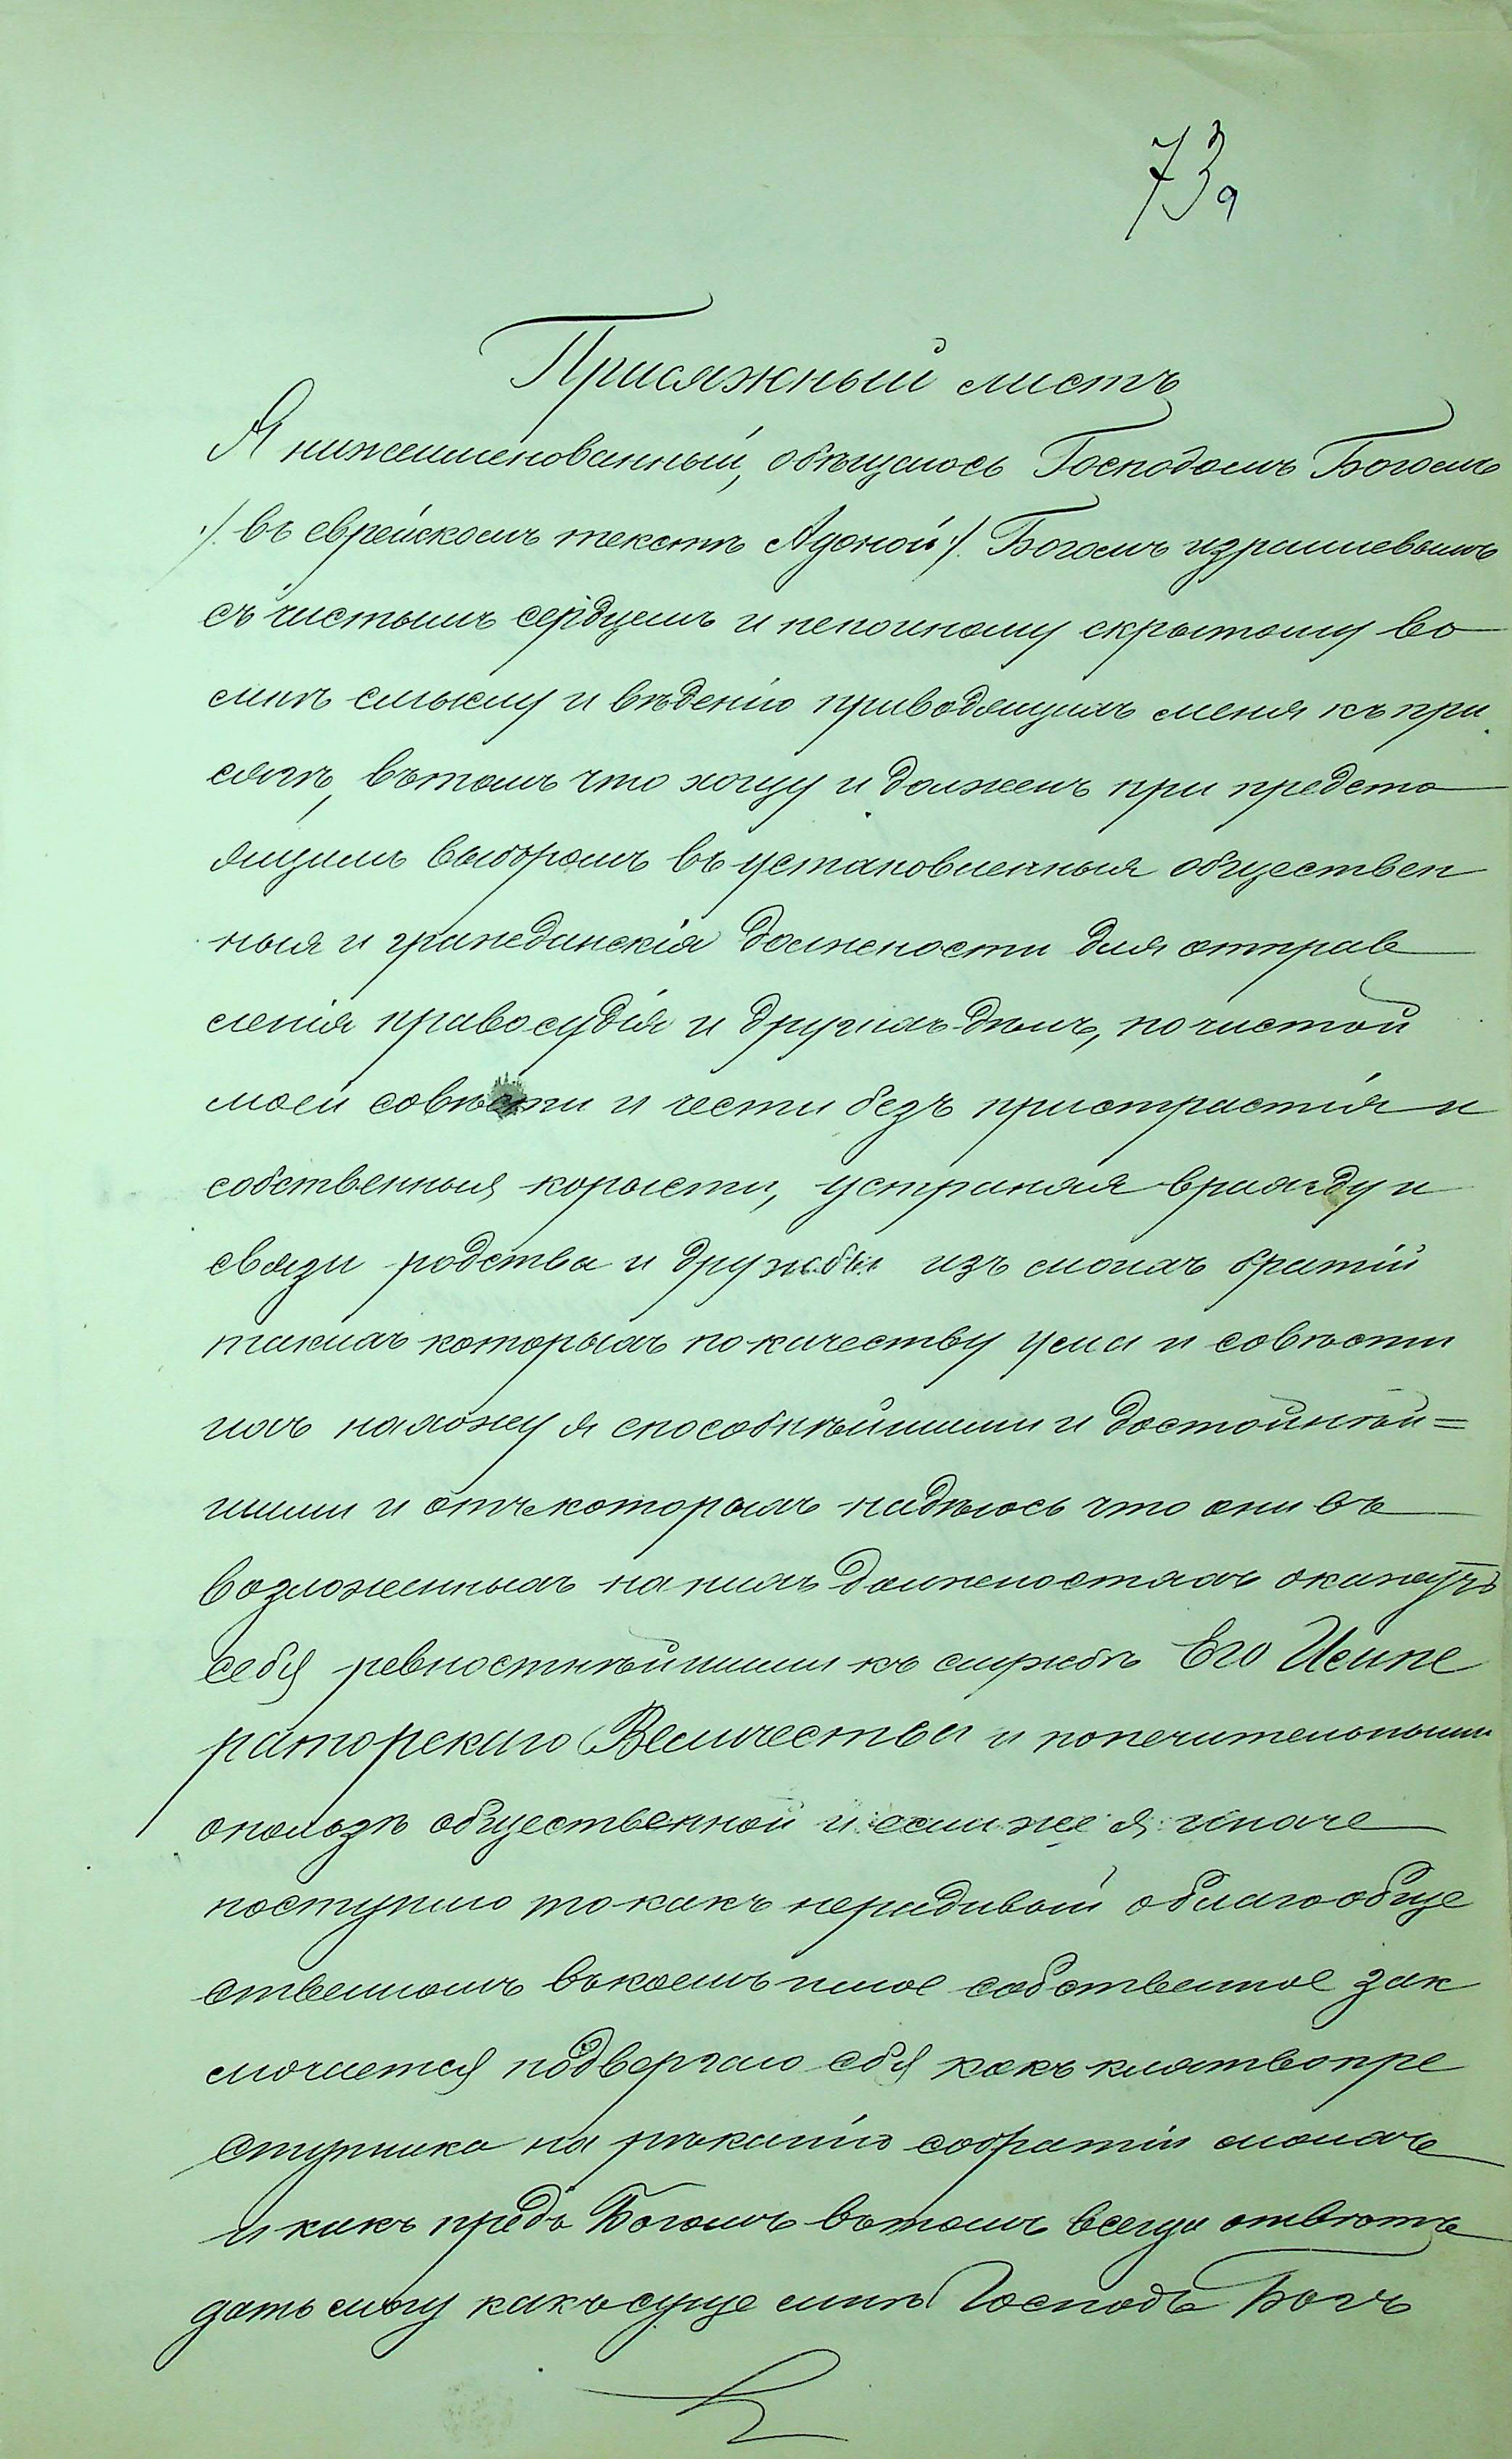 73а
Присяжный листъ
Я нижеименованный, обѣщаюсь Господомъ Богомъ
./. въ еврейскомъ текстѣ Адоной ./. Богомъ израилевымъ
съ чистымъ сердцемъ и непоиному скрытому во
мнѣ смыслу и вѣденію приводящимъ меня къ при
сягѣ, въ томъ что хощу и долженъ при предсто
ящимъ выборомъ въ установленныя обществен
ныя и гражданскія должности для отправ
ленія правосудія и другихъ дѣлъ, по чистой
моей совѣсти и чести безъ пристрастія и
собственныя корысти, устраняя вражду и
связи родства и дружбы изъ моихъ братій
такихъ которыхъ по качеству ума и совѣсти
ихъ нахожу я способнѣйшими и достойнѣй=
шими и отъ которыхъ надѣюсь что они въ
возложенныхъ на нихъ должностяхъ окажутъ
себя ревностнѣйшими къ службѣ Его Импе
раторскаго Величества и попечительными
о пользѣ общественной и если же я иначе
поступлю то какъ нерадивый о благо обще
ственномъ въ коемъ и мое собственное зак
лючается подвергаю себя какъ клятвопре
ступника на рѣканію собратіи моихъ
и какъ предъ Богомъ въ томъ всегда отвѣтъ
дать могу какъ суще мнѣ Господь Богъ